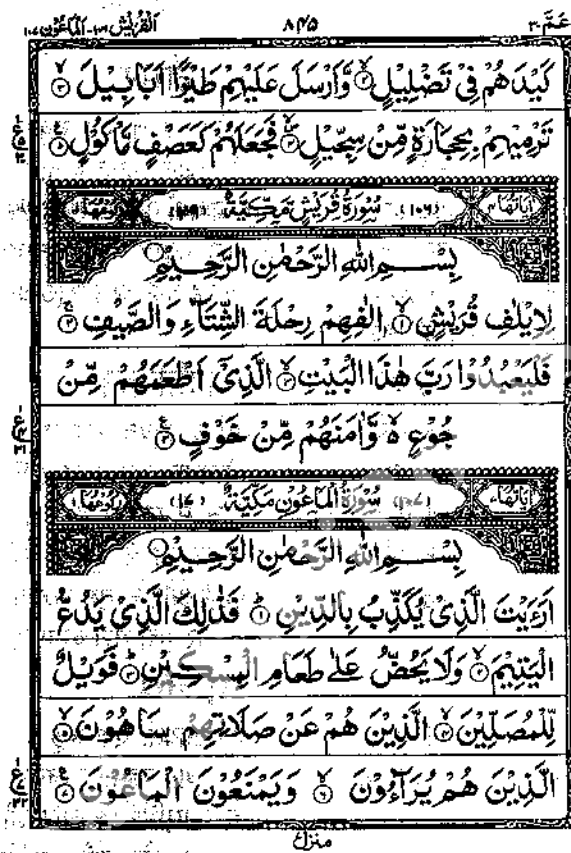 عَمَّ ٣٠ ٨٤٥ الْقُرَيْش ١٠٦ - الْمَاعُوْن ١٠٧
كَيْدَهُمْ فِيْ تَضْلِيْلٍ ۙ﴿۲﴾ وَّاَرْسَلَ عَلَيْهِمْ طَيْرًا اَبَابِيْلَ ۙ﴿۳﴾
تَرْمِيْهِمْ بِحِجَارَةٍ مِّنْ سِجِّيْلٍ ۙ﴿۴﴾ فَجَعَلَهُمْ كَعَصْفٍ مَّاْكُوْلٍ ﴿۵﴾
اٰيَاتُهَا ٤ (١٠٦) سُوْرَةُ قُرَيْشٍ مَكِّيَّةٌ (٢٩) رُكُوْعُهَا
بِسْمِ اللّٰهِ الرَّحْمٰنِ الرَّحِيْمِ
لِاِيْلٰفِ قُرَيْشٍ ۙ﴿۱﴾ اٖلٰفِهِمْ رِحْلَةَ الشِّتَآءِ وَالصَّيْفِ ﴿۲﴾
فَلْيَعْبُدُوْا رَبَّ هٰذَا الْبَيْتِ ۙ﴿۳﴾ الَّذِيْۤ اَطْعَمَهُمْ مِّنْ
جُوْعٍ ۙ وَّاٰمَنَهُمْ مِّنْ خَوْفٍ ﴿۴﴾
اٰيَاتُهَا (١٠٧) سُوْرَةُ الْمَاعُوْنِ مَكِّيَّةٌ (١٧) رُكُوْعُهَا
بِسْمِ اللّٰهِ الرَّحْمٰنِ الرَّحِيْمِ
اَرَءَيْتَ الَّذِيْ يُكَذِّبُ بِالدِّيْنِ ؕ﴿۱﴾ فَذٰلِكَ الَّذِيْ يَدُعُّ
الْيَتِيْمَ ۙ﴿۲﴾ وَلَا يَحُضُّ عَلٰى طَعَامِ الْمِسْكِيْنِ ؕ﴿۳﴾ فَوَيْلٌ
لِّلْمُصَلِّيْنَ ۙ﴿۴﴾ الَّذِيْنَ هُمْ عَنْ صَلَاتِهِمْ سَاهُوْنَ ۙ﴿۵﴾
الَّذِيْنَ هُمْ يُرَآءُوْنَ ۙ﴿۶﴾ وَيَمْنَعُوْنَ الْمَاعُوْنَ ﴿۷﴾
منزل